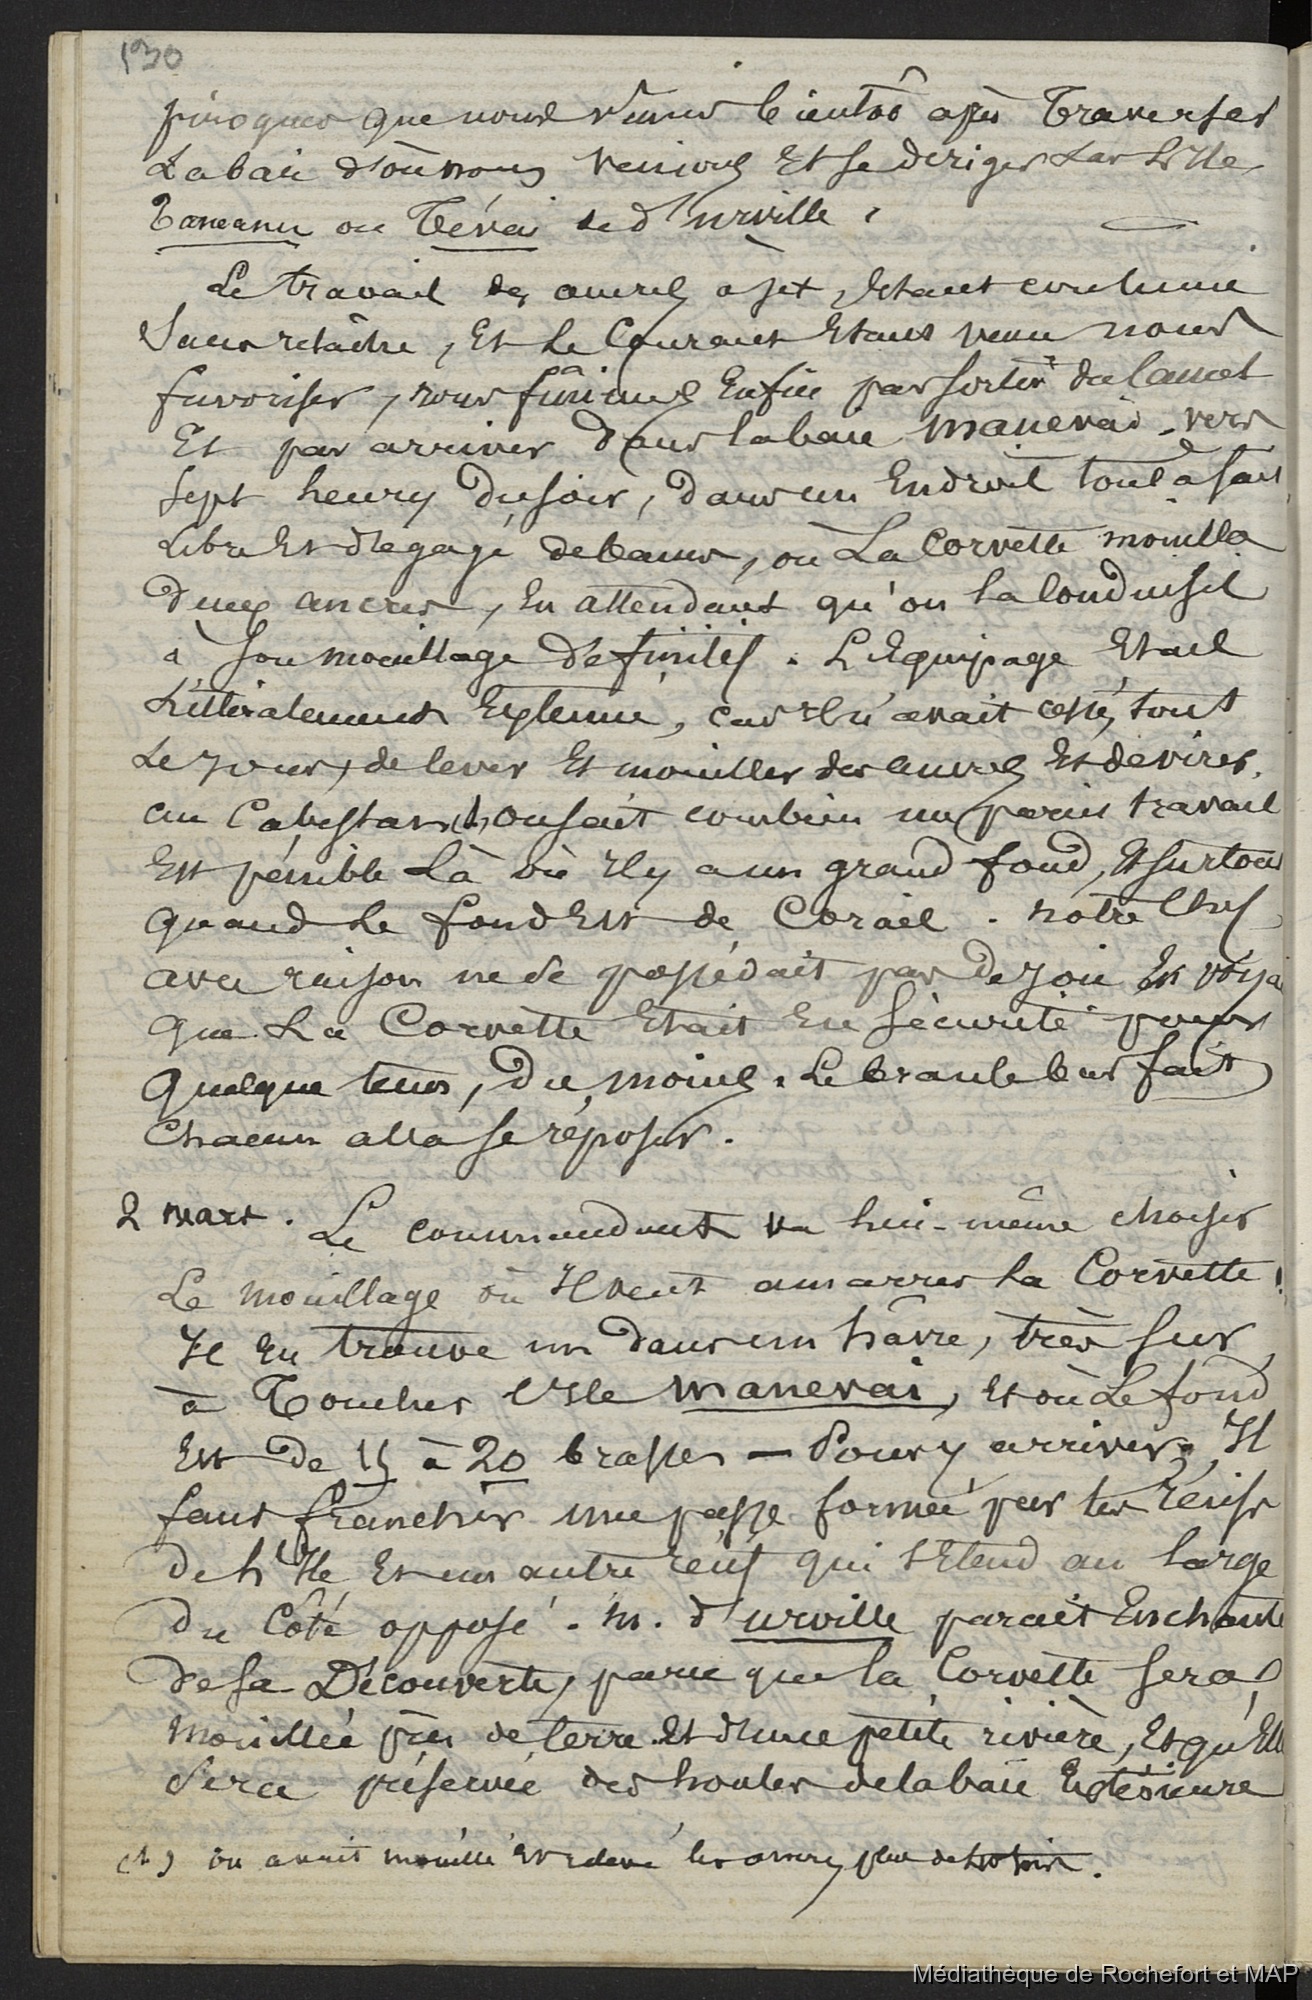 130
pirogues que nous vîmes bientôt après Traverser
La baie d'où nous venions Et se diriger sur L'Ile
Taneanu ou Tévai de d'urville.
Le travail des ancres a jet, s'étant continué
Sans relâche, Et Le Courant Etant venu nous
favoriser, nous finîmes Enfin par sortir du Canal
Et par arriver dans la baie Manevai vers
sept heures Du soir, dans un Endroit tout à fait
Libre Et dégagé de bancs, où La Corvette mouilla
Deux ancres, En attendant qu'on La Conduisit
à Son mouillage définitif. L'Equipage Etait
Littéralement Exténué, car Il n'avait cessé, tout
Le jour, de lever Et mouiller des ancres Et de virer
au Cabestan (1), on sait combien un pareil travail
Est pénible Là où Il y a un grand fond, Et surtout
quand Le fond Est de Corail. notre Chef
avec raison ne se possédait pas de joie En voyant
que La Corvette Etait En Sécurité pour
quelque tems, Du moins. Le branle bas fait
Chacun alla se réposer.
2 mars. Le commandant va lui-même choisir
Le mouillage où Il veut amarrer La Corvette.
Il En trouve un dans un hâvre, très sur
à Toucher L'Ile Manevai, Et où Le fond
Est De 15 à 20 brasses — Pour y arriver, Il
faut franchir une passe formée par les Récifs
de L'Ile, Et un autre récif qui s'Etend au Large
Du Côté opposé. M. d'urville parait Enchanté
de sa Découverte, parce que La Corvette sera
mouillée près de terre Et d'une petite rivière, Et qu'Elle
Sera préservée des houles de la baie Extérieure
(1) on avait mouillé Et relevé les ancres plus de
Médiathèque de Rochefort et MAP